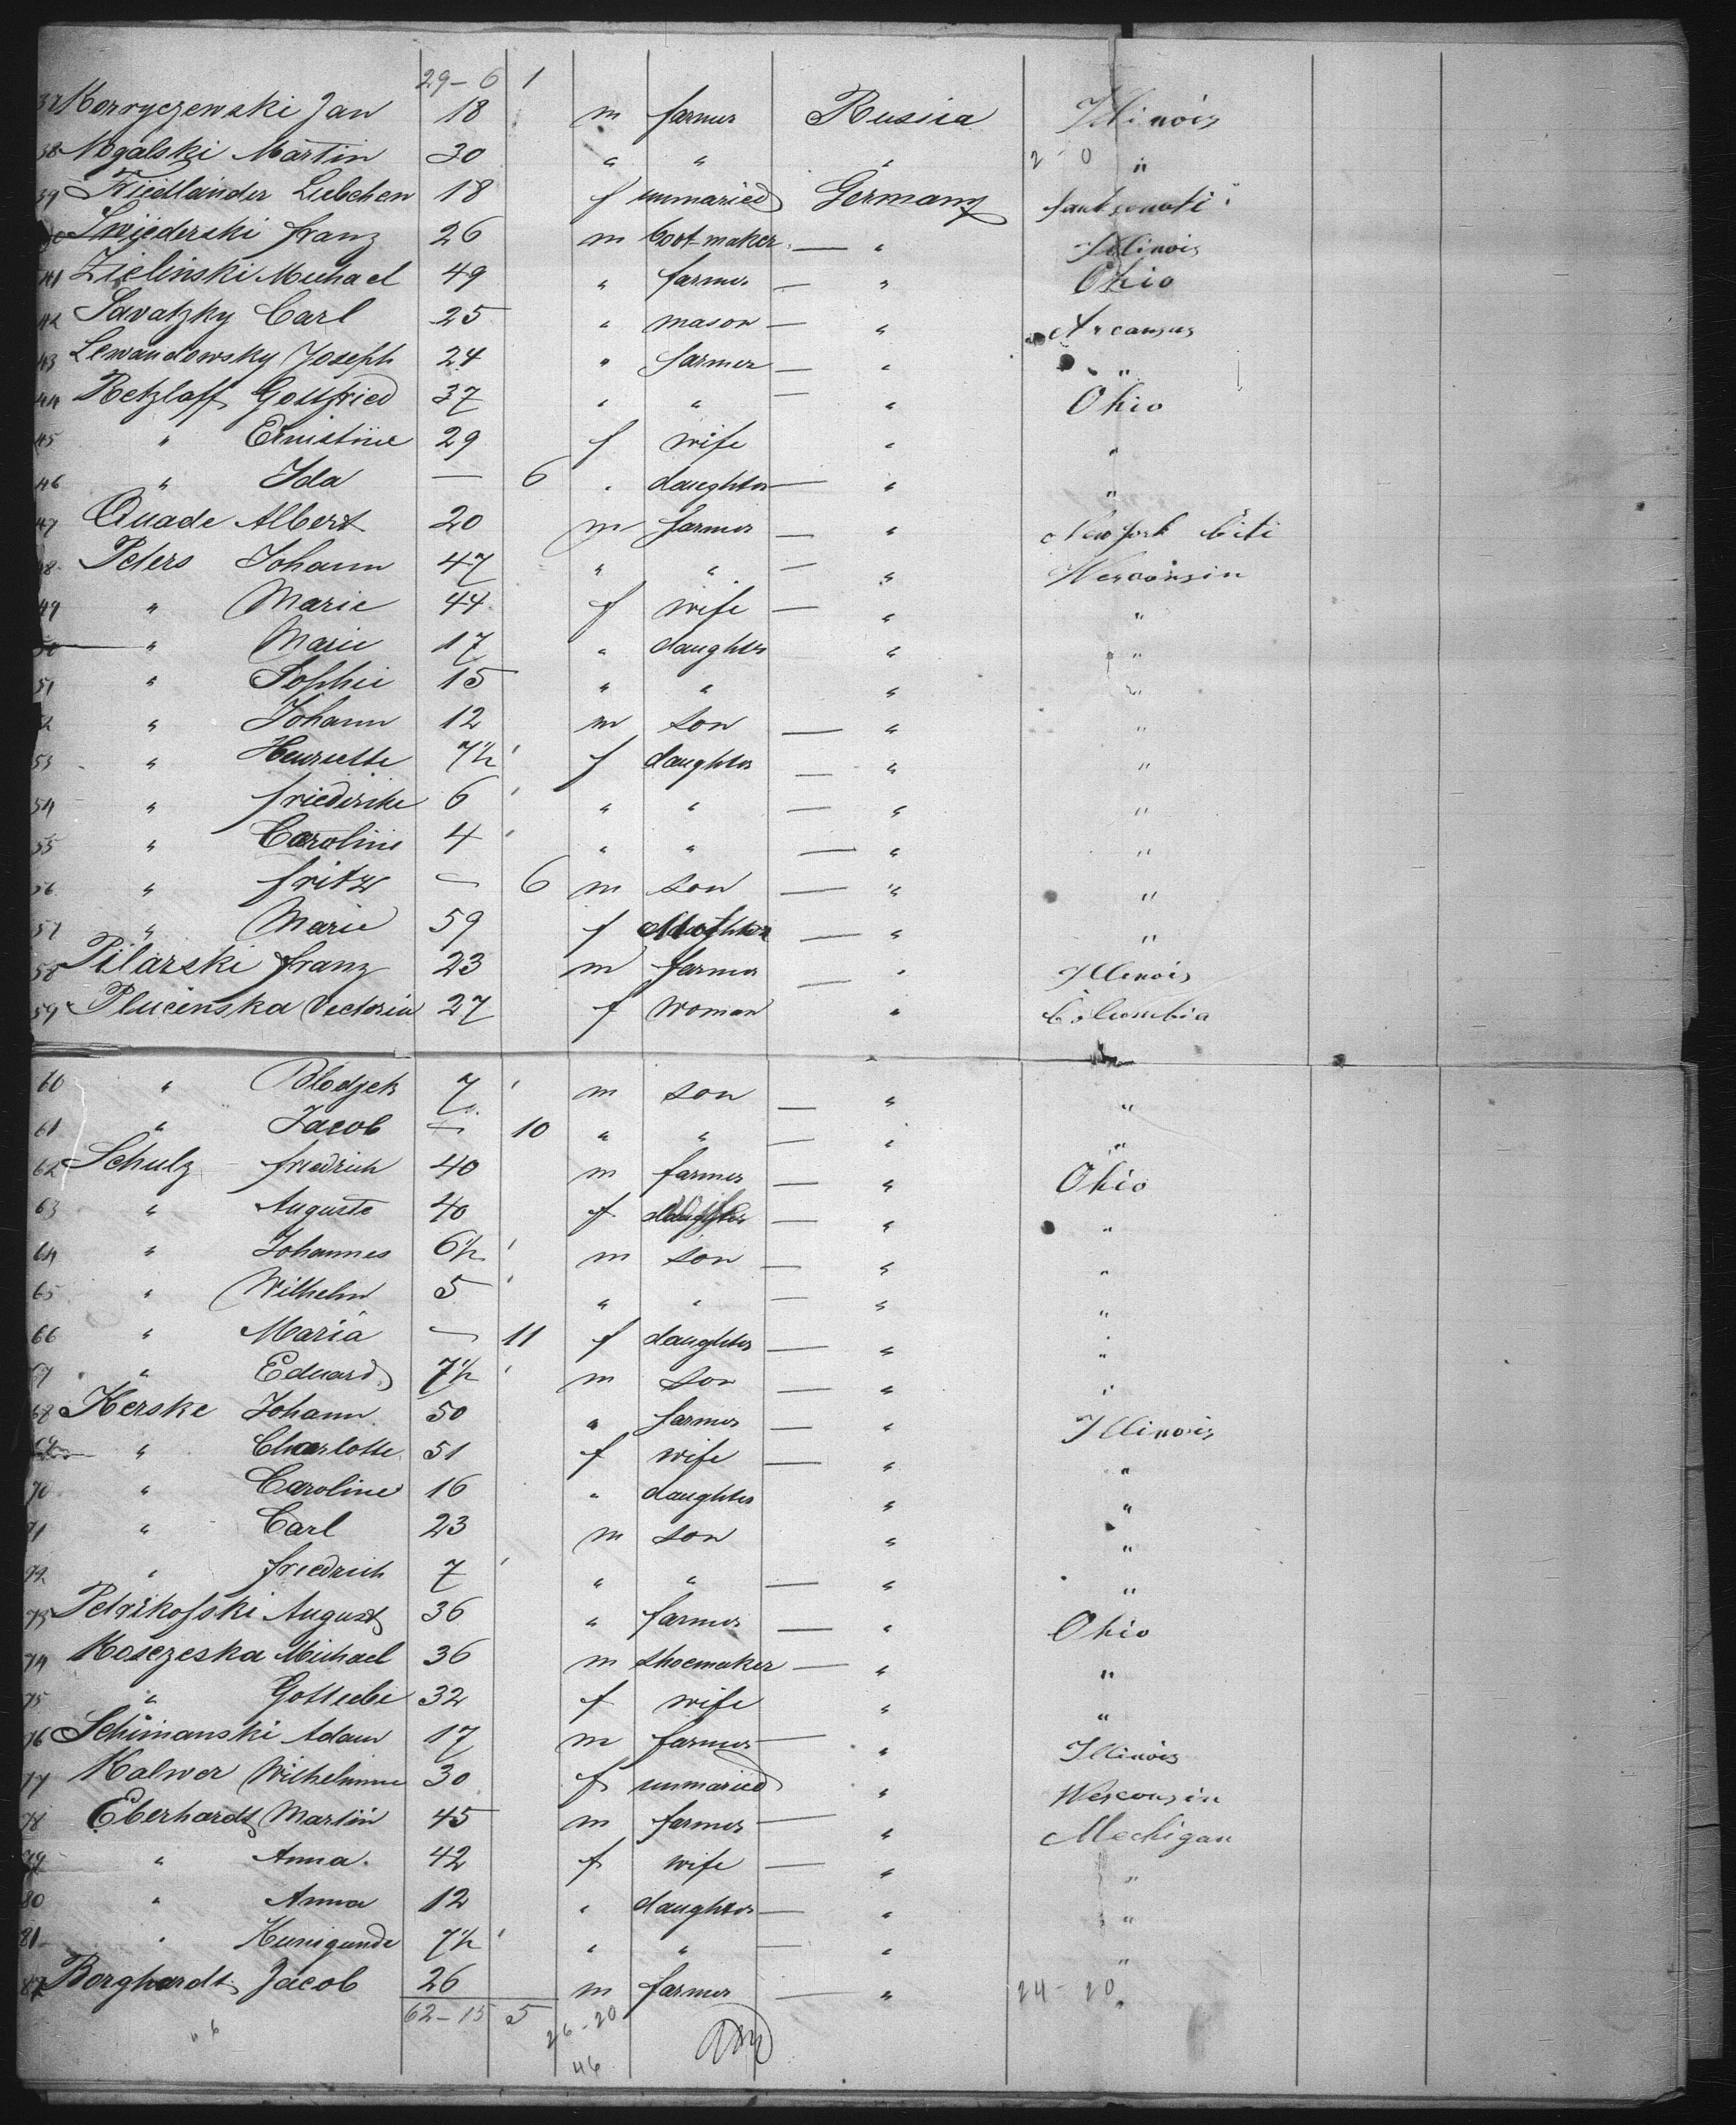 29-6 1
37 Korryczewski Jan 18 m farmer Russia Illinois
38 Nogalski Martin 30 " " " 2-0 "
39 Friedländer Liebchen 18 f unmaried Germany
Swiederski franz 26 m boot-maker — " Illinois
41 Zielinski Michael 49 " farmer — " Ohio
42 Savatzky Carl 25 " mason — " Arcansas
43 Lewandowsky Joseph 24 " farmer — " "
44 Retzlaff Gottfried 37 " " — " Ohio
45 " Ernistine 29 f wife " "
46 " Ida — 6 " daughter — " "
47 Quade Albert 20 m farmer — " New York Citi
48 Peters Johann 47 " " — " Wesconsin
49 " Marie 44 f wife — " "
50 " Marie 17 " daughter " "
51 " Sophie 15 " " " "
52 " Johann 12 m son — " "
53 " Henriette 7½ ' f daughter — " "
54 " friederike 6 ' " " — " "
55 " Caroline 4 ' " " — " "
56 " fritz — 6 m son — " "
57 " Marie 59 f Mother — " "
58 Pilarski franz 23 m farmer — " Illenois
59 Plucinska Vectoria 27 f woman " Columbia
60 " Blodzek 7 ' m son — " "
61 " Jacob — 10 " " — " "
62 Schulz friedrich 40 m farmer — " Ohio
63 " Auguste 40 f — " "
64 " Johannes 6½ ' m son — " "
65 " Wilhelm 5 ' " " — " "
66 " Maria — 11 f daughter — " "
67 " Eduard 7½ ' m son — " "
68 Kerske Johann 50 " farmer — " Illinois
" Charlotte 51 f wife — " "
70 " Caroline 16 " daughter " "
71 " Carl 23 m son " "
72 " friedrich 7 ' " " — " "
73 Petrikofski August 36 " farmer — " Ohio
74 Kosczeska Michael 36 m shoemaker — " "
75 " Gottliebe 32 f wife " "
76 Schimanski Adam 17 m farmer — " Illinois
77 Kalwer Wilhelmine 30 f unmaried " Wesconsin
78 Eberhardt Martin 45 m farmer — " Mechigan
79 " Anna 42 f wife — " "
80 " Anna 12 " daughter — " "
81 " Kunigunde 7½ ' " " — " "
82 Borghardt Jacob 26 m farmer — " 24-20 "
62-15 5 26-20
46